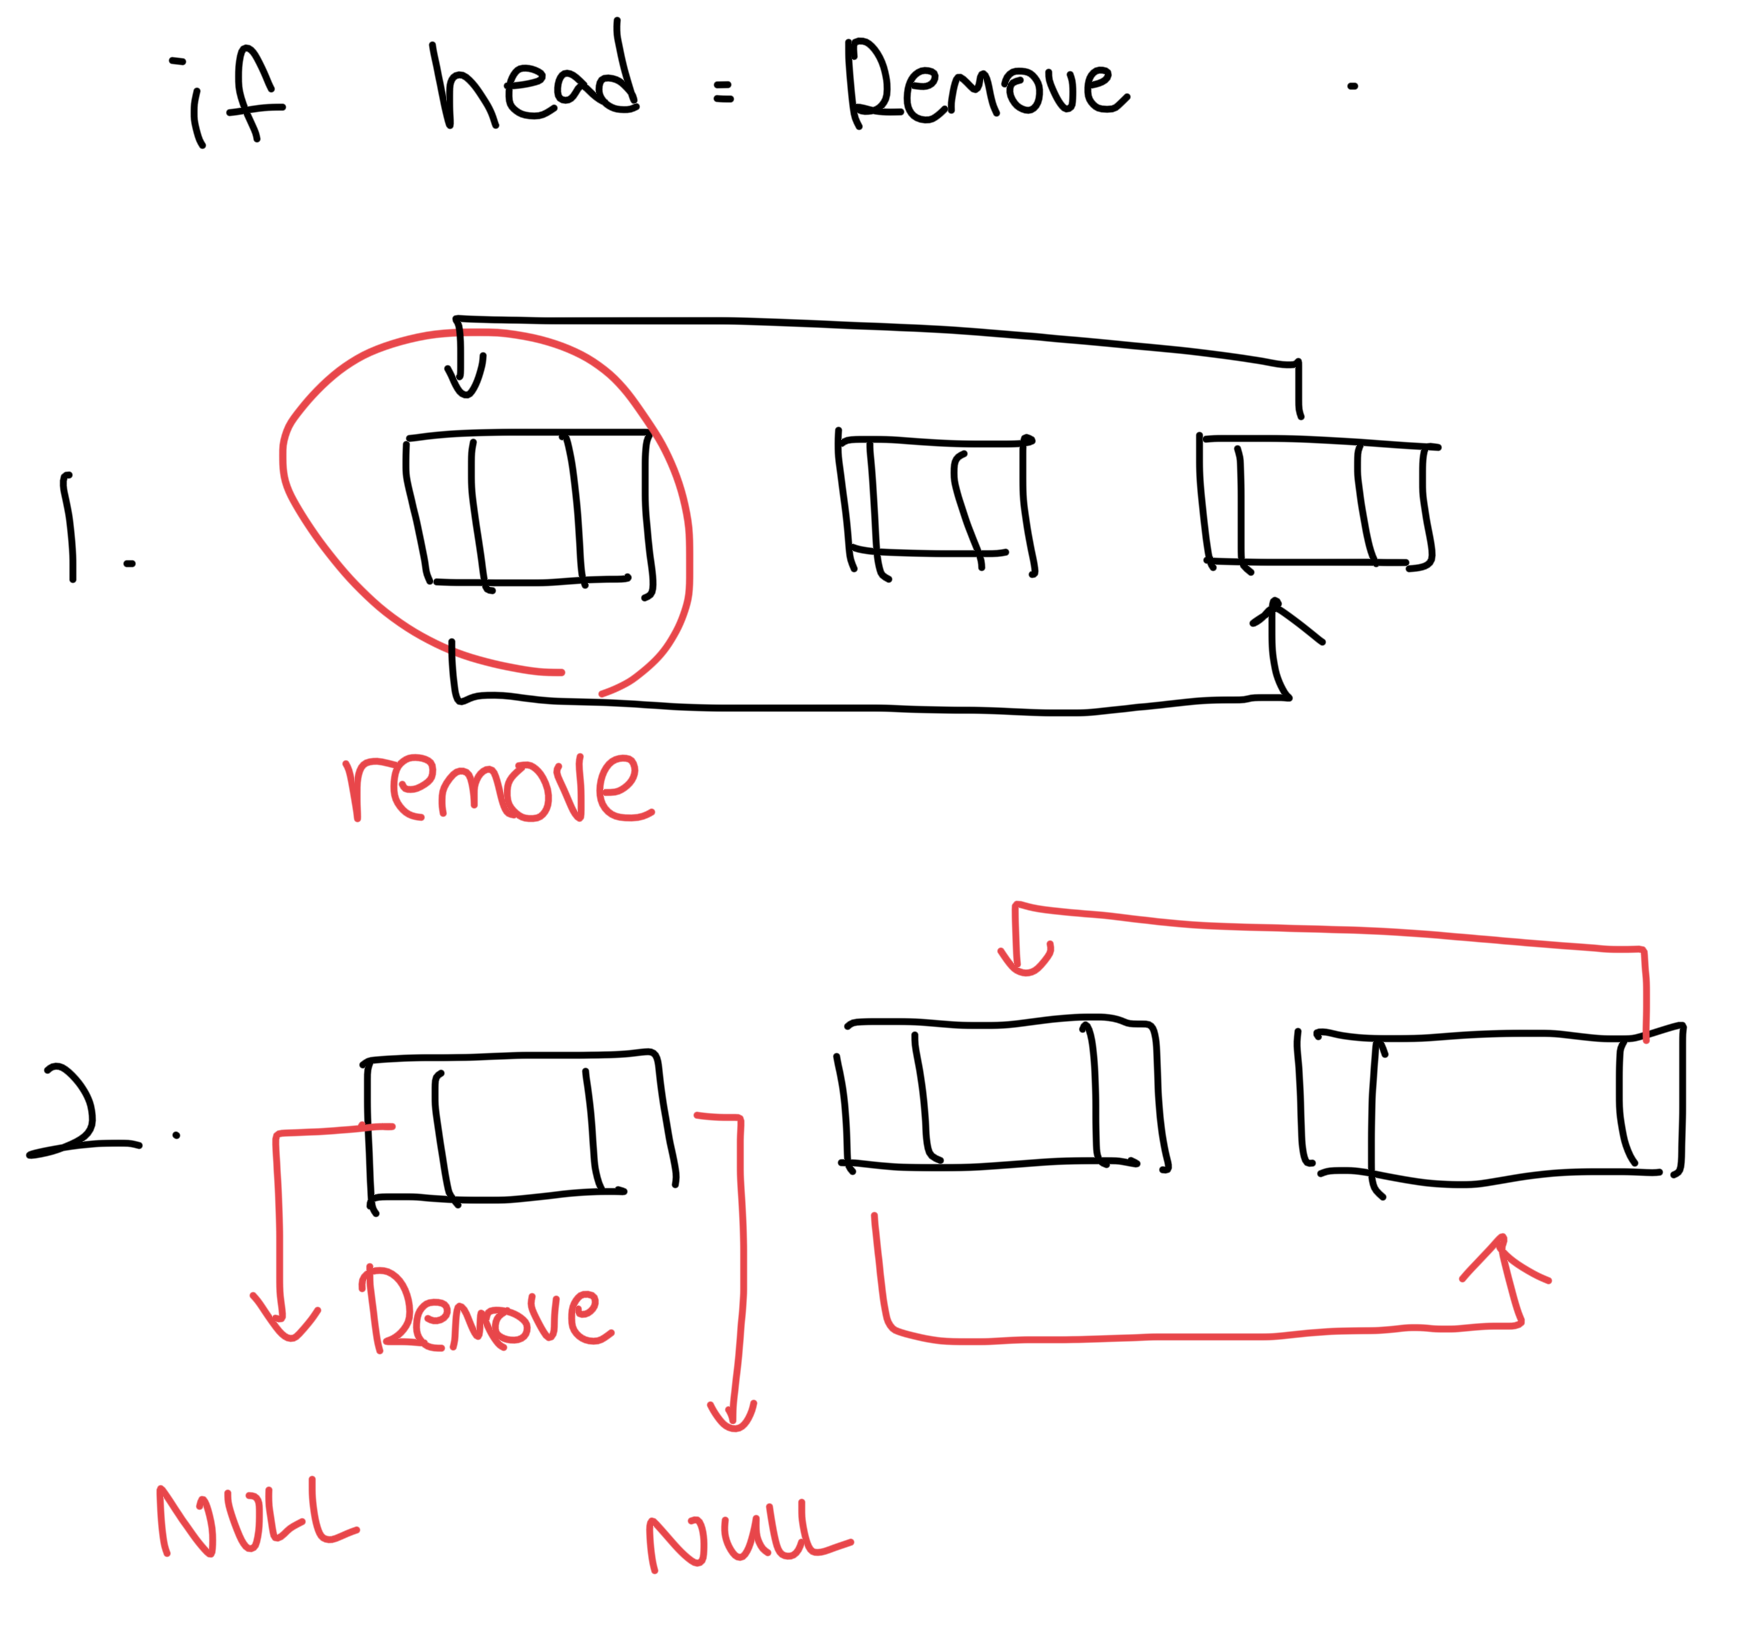 if head = Remove .
1.
remove
2.
Remove
NULL NULL